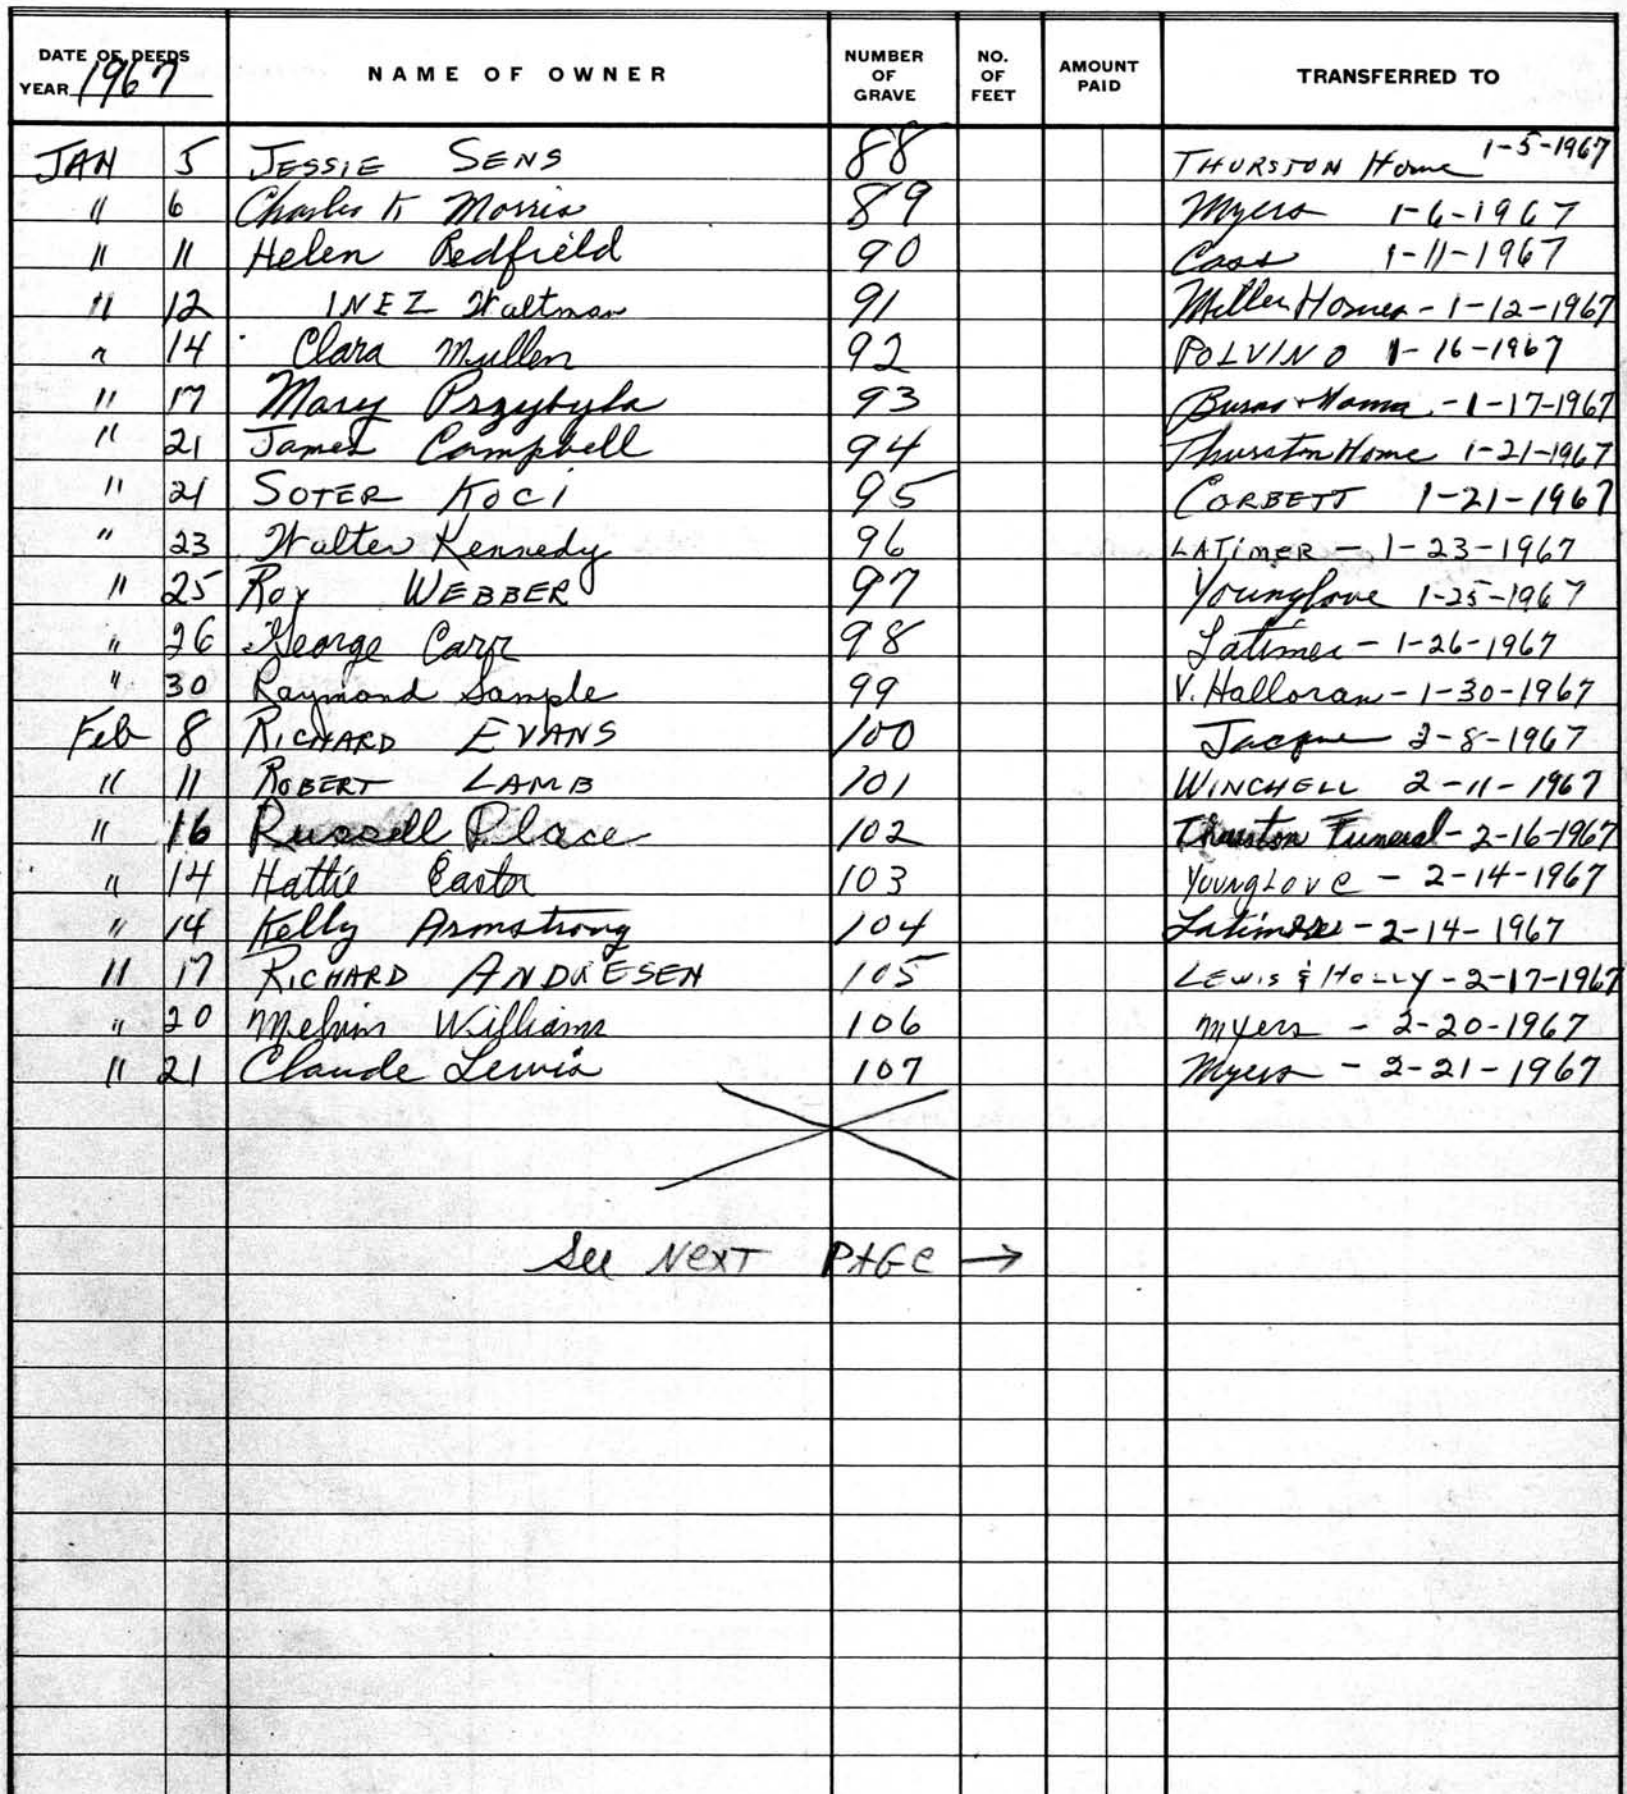 DATE OF DEEDS YEAR 1967 NAME OF OWNER NUMBER OF GRAVE NO. OF FEET AMOUNT PAID TRANSFERRED TO
JAN 5 JESSIE SENS 88 THURSTON Home 1-5-1967
" 6 Charles K Morris 89 Myers 1-6-1967
" 11 Helen Redfield 90 Cass 1-11-1967
" 12 INEZ Waltman 91 Miller Homer - 1-12-1967
" 14 Clara Mullen 92 POLVINO 1-16-1967
" 17 Mary Przybyla 93 1-17-1967
" 21 James Campbell 94 Thurston Home 1-21-1967
" 21 SOTER KOCI 95 CORBETT 1-21-1967
" 23 Walter Kennedy 96 LATimER - 1-23-1967
" 25 Roy WEBBER 97 Younglove 1-25-1967
" 26 George Carr 98 Latimer - 1-26-1967
" 30 Raymond Sample 99 V. Halloran - 1-30-1967
Feb 8 RICHARD EVANS 100 2-8-1967
" 11 ROBERT LAMB 101 WINCHELL 2-11-1967
" 16 Russell Place 102 Thurston Funeral - 2-16-1967
" 14 Hattie 103 YoungLove - 2-14-1967
" 14 Kelly Armstrong 104 2-14-1967
" 17 RICHARD ANDRESEN 105 LEWIS & HOLLY - 2-17-1967
" 20 Melvin Williams 106 Myers - 2-20-1967
" 21 Claude Lewis 107 Myers - 2-21-1967
See NexT PAGe →